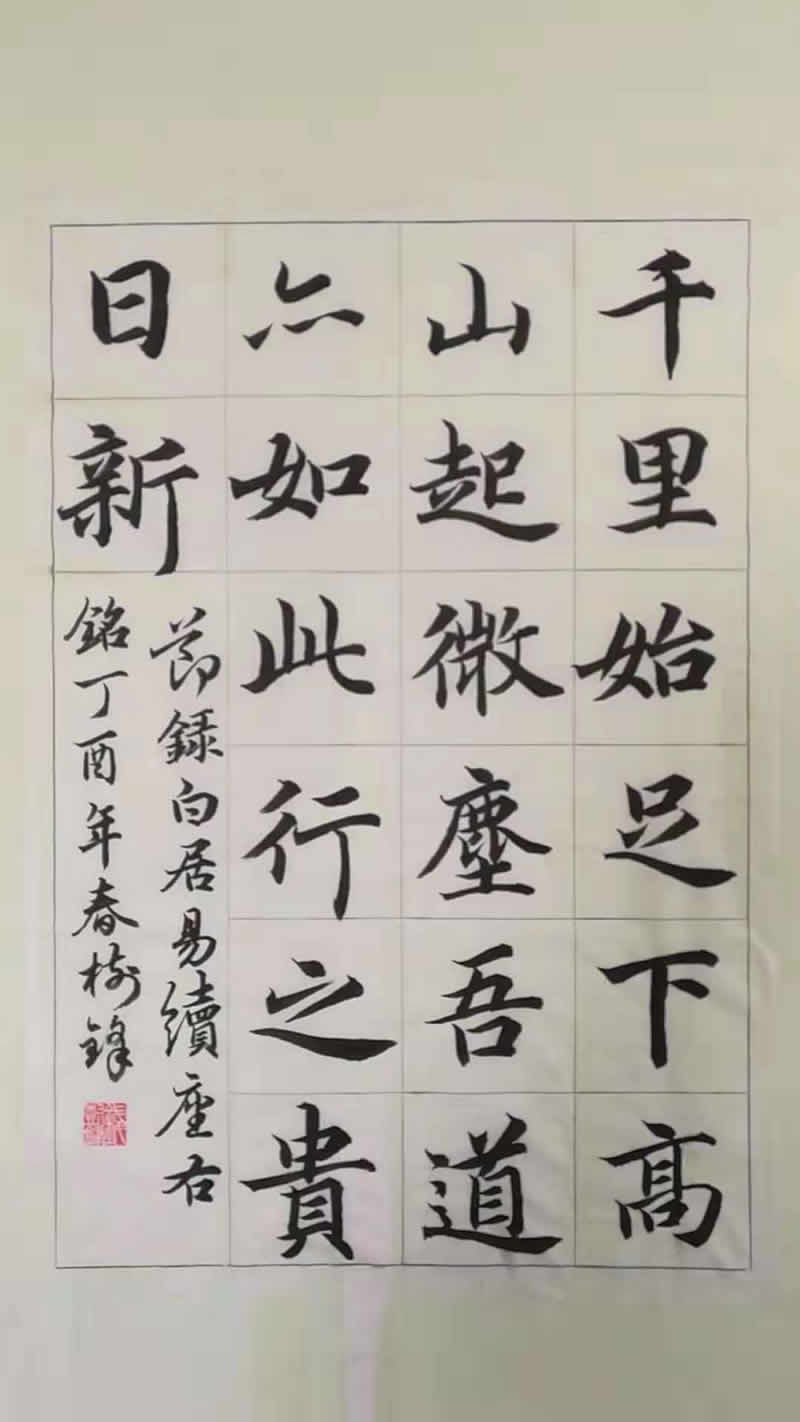 千里始足下高
山起微塵吾道
亦如此行之貴
日新
節録白居易續座右
銘丁酉年春樹鋒